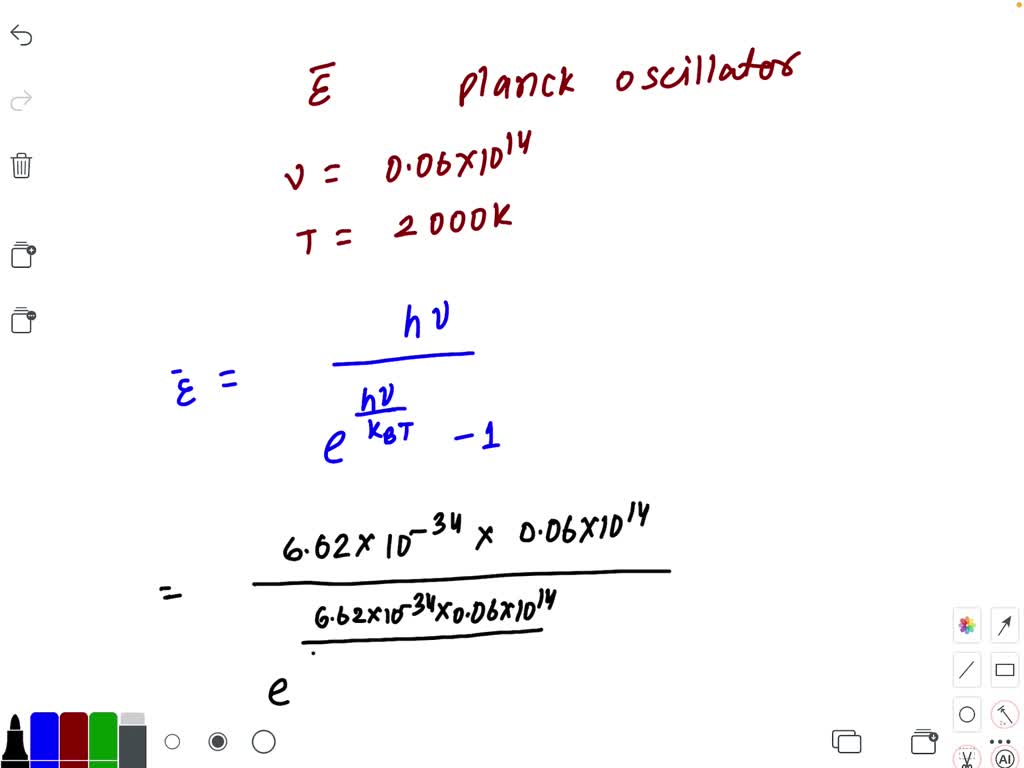 Ē Planck oscillator
ν = 0.06×10¹⁴
T = 2000K
hν
ε̄ =
e^(hν/k_BT) - 1
6.62×10⁻³⁴ × 0.06×10¹⁴
=
6.62×10⁻³⁴×0.06×10¹⁴
e
AI